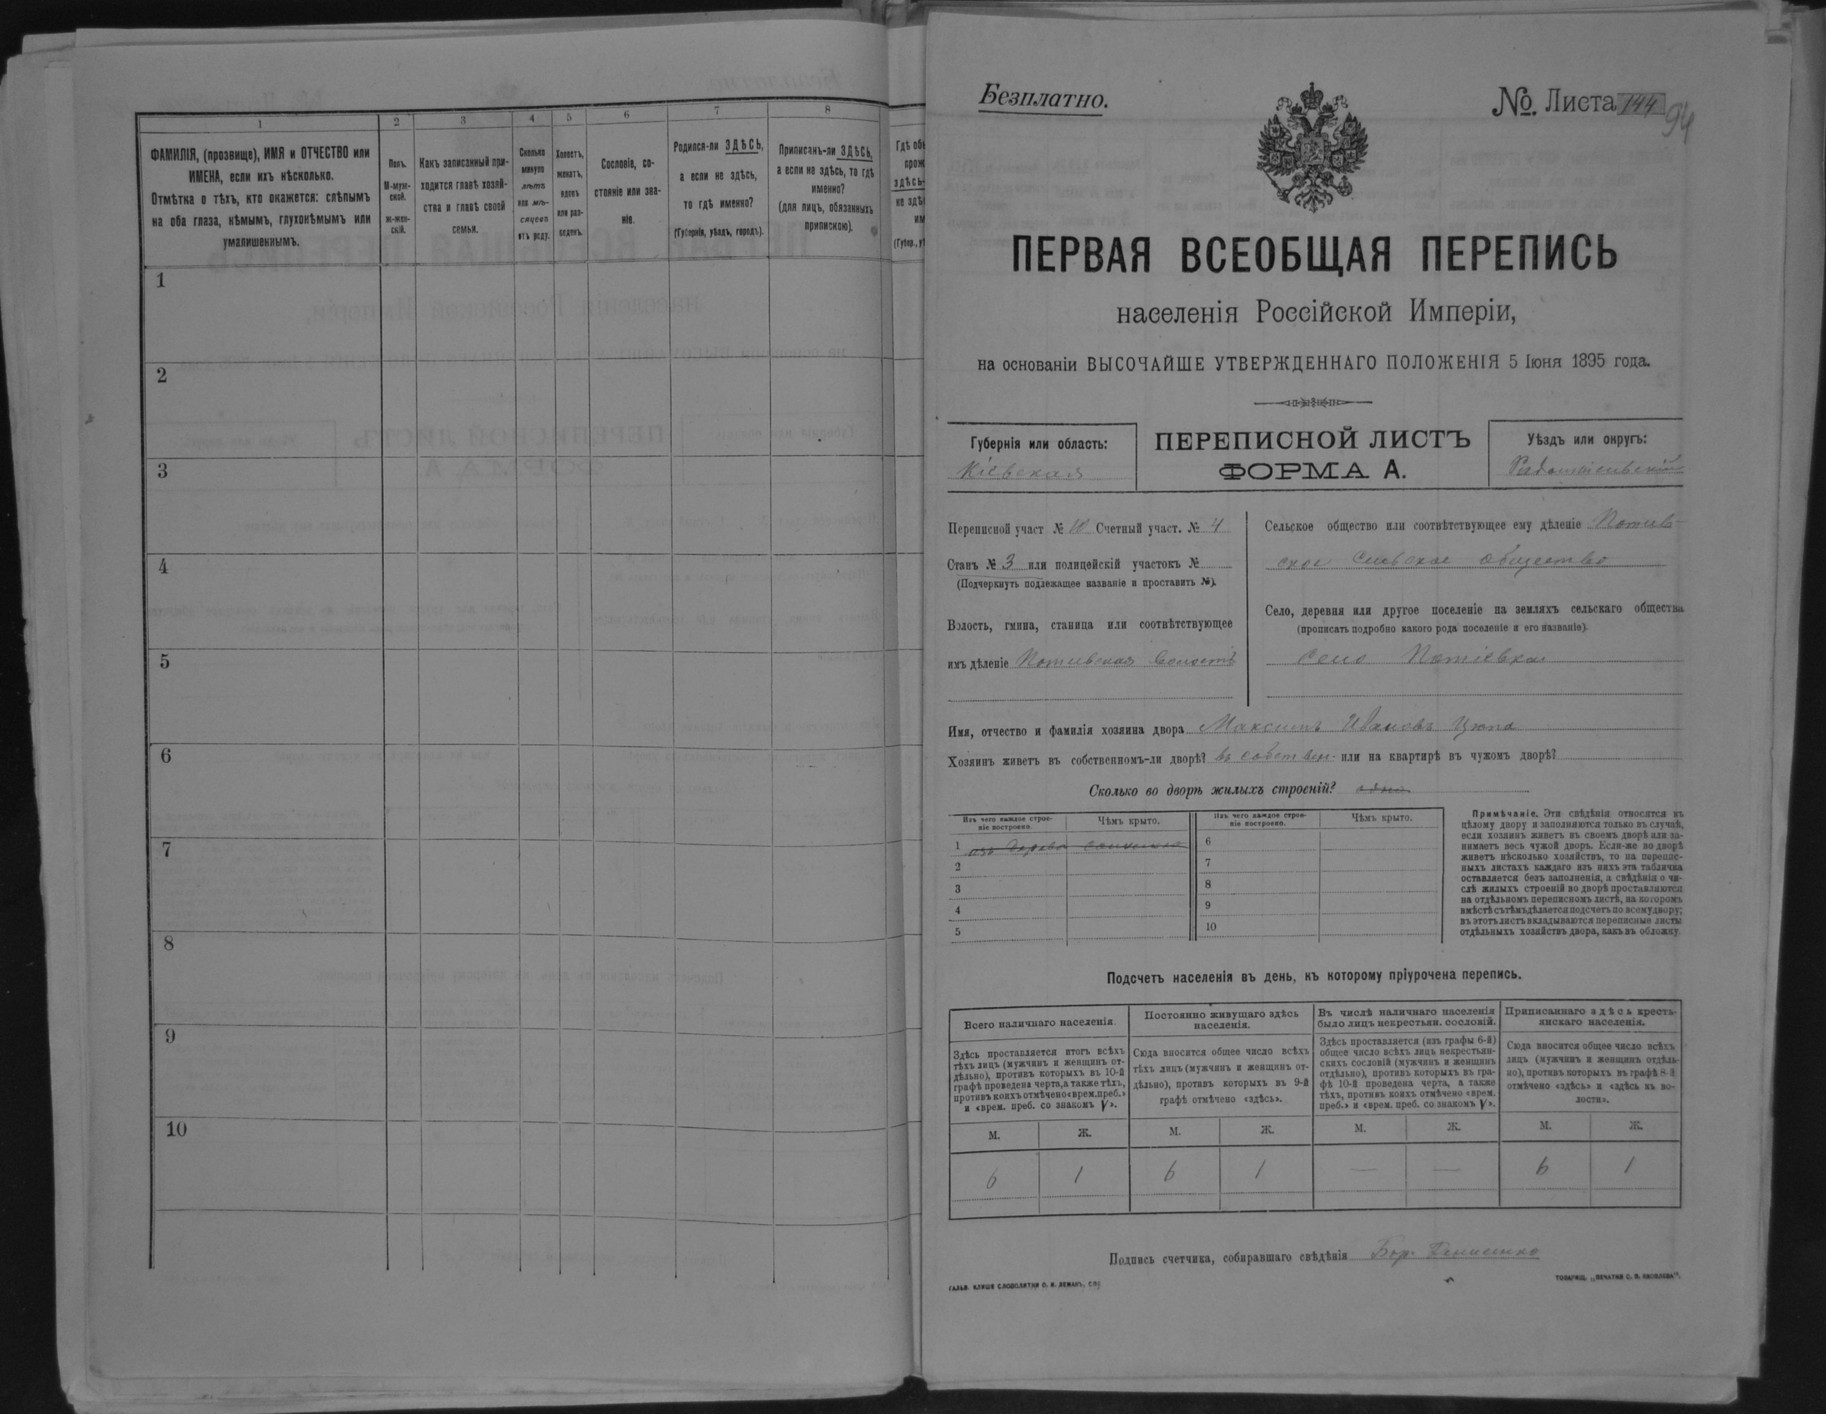 1
2
3
4
5
6
7
8
ФАМИЛІЯ, (прозвище), ИМЯ и ОТЧЕСТВО или
ИМЕНА, если ихъ нѣсколько.
Отмѣтка о тѣхъ, кто окажется: слѣпымъ
на оба глаза, нѣмымъ, глухонѣмымъ или
умалишеннымъ.
Полъ.
М-муж-
ской.
Ж-жен-
скій.
Какъ записанный при-
ходится главѣ хозяй-
ства и главѣ своей
семьи.
Сколько
минуло
лѣтъ
или мѣ-
сяцевъ
отъ роду.
Холостъ,
женатъ,
вдовъ
или раз-
веденъ.
Сословіе, со-
стояніе или зва-
ніе.
Родился-ли ЗДѢСЬ,
а если не здѣсь,
то гдѣ именно?
(Губернія, уѣздъ, городъ).
Приписанъ-ли ЗДѢСЬ,
а если не здѣсь, то гдѣ
именно?
(для лицъ, обязанныхъ
припискою).
1
2
3
4
5
6
7
8
9
10
Безплатно.
№ Листа 144
94
ПЕРВАЯ ВСЕОБЩАЯ ПЕРЕПИСЬ
населенія Россійской Имперіи,
на основаніи ВЫСОЧАЙШЕ УТВЕРЖДЕННАГО ПОЛОЖЕНІЯ 5 Іюня 1895 года.
Губернія или область:
Кіевская
ПЕРЕПИСНОЙ ЛИСТЪ
ФОРМА А.
Уѣздъ или округъ:
Радомысльскій
Переписной участ № 10 Счетный участ. № 4
Станъ № 3 или полицейскій участокъ №
(Подчеркнуть подлежащее названіе и проставить №).
Волость, гмина, станица или соотвѣтствующее
имъ дѣленіе Потіевская волость
Сельское общество или соотвѣтствующее ему дѣленіе Потіев-
ское сельское общество
Село, деревня или другое поселеніе на земляхъ сельскаго общества
(прописать подробно какого рода поселеніе и его названіе).
село Потіевка
Имя, отчество и фамилія хозяина двора Максимъ Ивановъ Цюпа
Хозяинъ живетъ въ собственномъ-ли дворѣ? въ собствен. или на квартирѣ въ чужомъ дворѣ?
Сколько во дворѣ жилыхъ строеній? одно
Изъ чего каждое строе-
ніе построено.
Чѣмъ крыто.
Изъ чего каждое строе-
ніе построено.
Чѣмъ крыто.
1 изъ дерева соломою
2
3
4
5
6
7
8
9
10
Примѣчаніе. Эти свѣдѣнія относятся къ
цѣлому двору и заполняются только въ случаѣ,
если хозяинъ живетъ въ своемъ дворѣ или за-
нимаетъ весь чужой дворъ. Если-же во дворѣ
живетъ нѣсколько хозяйствъ, то на перепис-
ныхъ листахъ каждаго изъ нихъ эта табличка
оставляется безъ заполненія, а свѣдѣнія о чи-
слѣ жилыхъ строеній во дворѣ проставляются
на отдѣльномъ переписномъ листѣ, на которомъ
вмѣстѣ съ тѣмъ дѣлается подсчетъ по всему двору;
въ этотъ листъ вкладываются переписные листы
отдѣльныхъ хозяйствъ двора, какъ въ обложку.
Подсчетъ населенія въ день, къ которому пріурочена перепись.
Всего наличнаго населенія.
Постоянно живущаго здѣсь
населенія.
Въ числѣ наличнаго населенія
было лицъ некрестьян. сословій.
Приписаннаго здѣсь кресть-
янскаго населенія.
Здѣсь проставляется итогъ всѣхъ
лицъ (мужчинъ и женщинъ от-
дѣльно), противъ которыхъ въ 10-й
графѣ проведена черта, а также тѣхъ,
противъ коихъ отмѣчено «врем. преб.»
и «врем. преб. со знакомъ V».
Сюда вносится общее число всѣхъ
тѣхъ лицъ (мужчинъ и женщинъ от-
дѣльно), противъ которыхъ въ 9-й
графѣ отмѣчено «здѣсь».
Здѣсь проставляется (изъ графы 6-й)
общее число всѣхъ лицъ некрестьян-
скихъ сословій (мужчинъ и женщинъ
отдѣльно), противъ которыхъ въ гра-
фѣ 10-й проведена черта, а также
тѣхъ, противъ коихъ отмѣчено «врем.
преб.» и «врем. преб. со знакомъ V».
Сюда вносится общее число всѣхъ
лицъ (мужчинъ и женщинъ отдѣль-
но), противъ которыхъ въ графѣ 8-й
отмѣчено «здѣсь» и «здѣсь въ во-
лости».
М. Ж. М. Ж. М. Ж. М. Ж.
6 1 6 1 — — 6 1
Подпись счетчика, собиравшаго свѣдѣнія Бор. Денисенко
ГАЛЬВ. КЛИШЕ СЛОВОЛИТНИ О. И. ЛЕМАНЪ, СПБ
ТОВАРИЩ. „ПЕЧАТНЯ С. П. ЯКОВЛЕВА“.